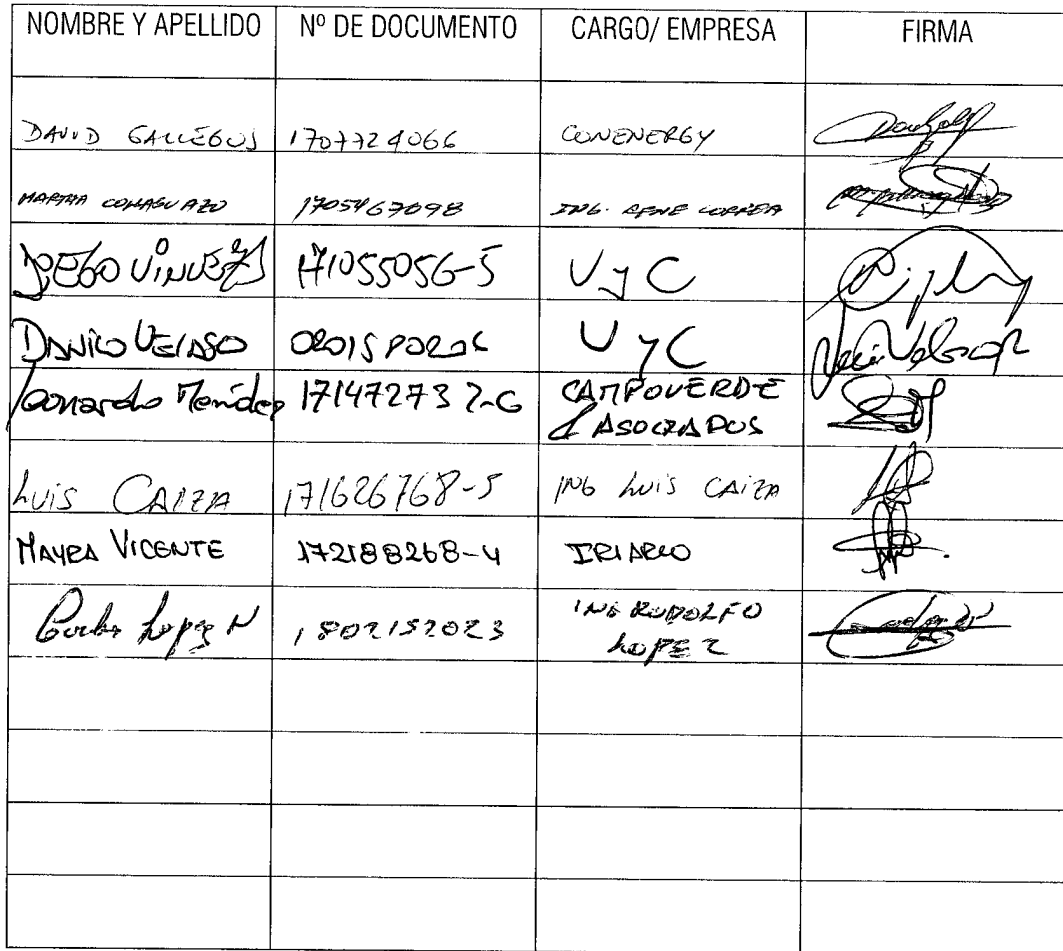 NOMBRE Y APELLIDO Nº DE DOCUMENTO CARGO/ EMPRESA FIRMA
DAVID GALLEGOS 1707724066 CONENERGY
MARTHA 1705467098 ING. RENE CORREA
DIEGO 171055056-5 VyC
DANILO VELASCO VyC
Leonardo Mendez CAMPOVERDE
& ASOCIADOS
LUIS CAIZA 171626768-5 ING LUIS CAIZA
MAYRA VICENTE 172188268-4 IRIARCO
Carlos Lopez N 1802152023 ING RUDOLFO
LOPEZ